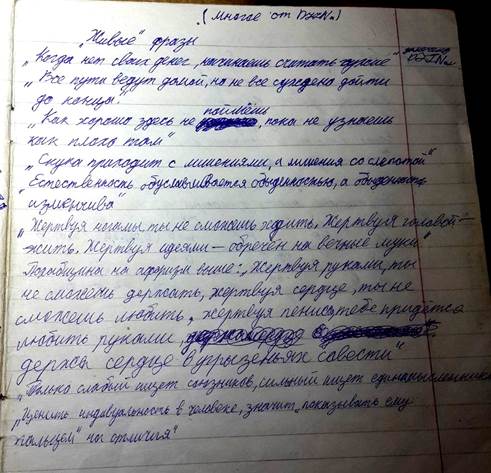 (Многое от
„Живые" фразы
„Когда нет своих денег, начинаешь считать чужие"
„Все пути ведут домой, но не все суждено дойти
до конца."
поймёшь
„Как хорошо здесь не, пока не узнаешь
как плохо там"
„Скука приходит с лишениями, а лишения со слепотой"
„Естественность обуславливается обыденностью, а обыденность
изменчива"
„Жертвуя ногами, ты не сможешь ходить. Жертвуя головой –
жить. Жертвуя идеями – обречён на вечные муки."
на афоризм выше: „Жертвуя руками, ты
не сможешь держать, жертвуя сердце, ты не
сможешь любить, жертвуя пенис тебе придётся
любить руками,
держа сердце в угрызеньях совести"
„Только слабый ищет союзников, сильный ищет единомышленников
„Ценить индивуальность в человеке, значит „показывать ему
пальцем" на отличия"